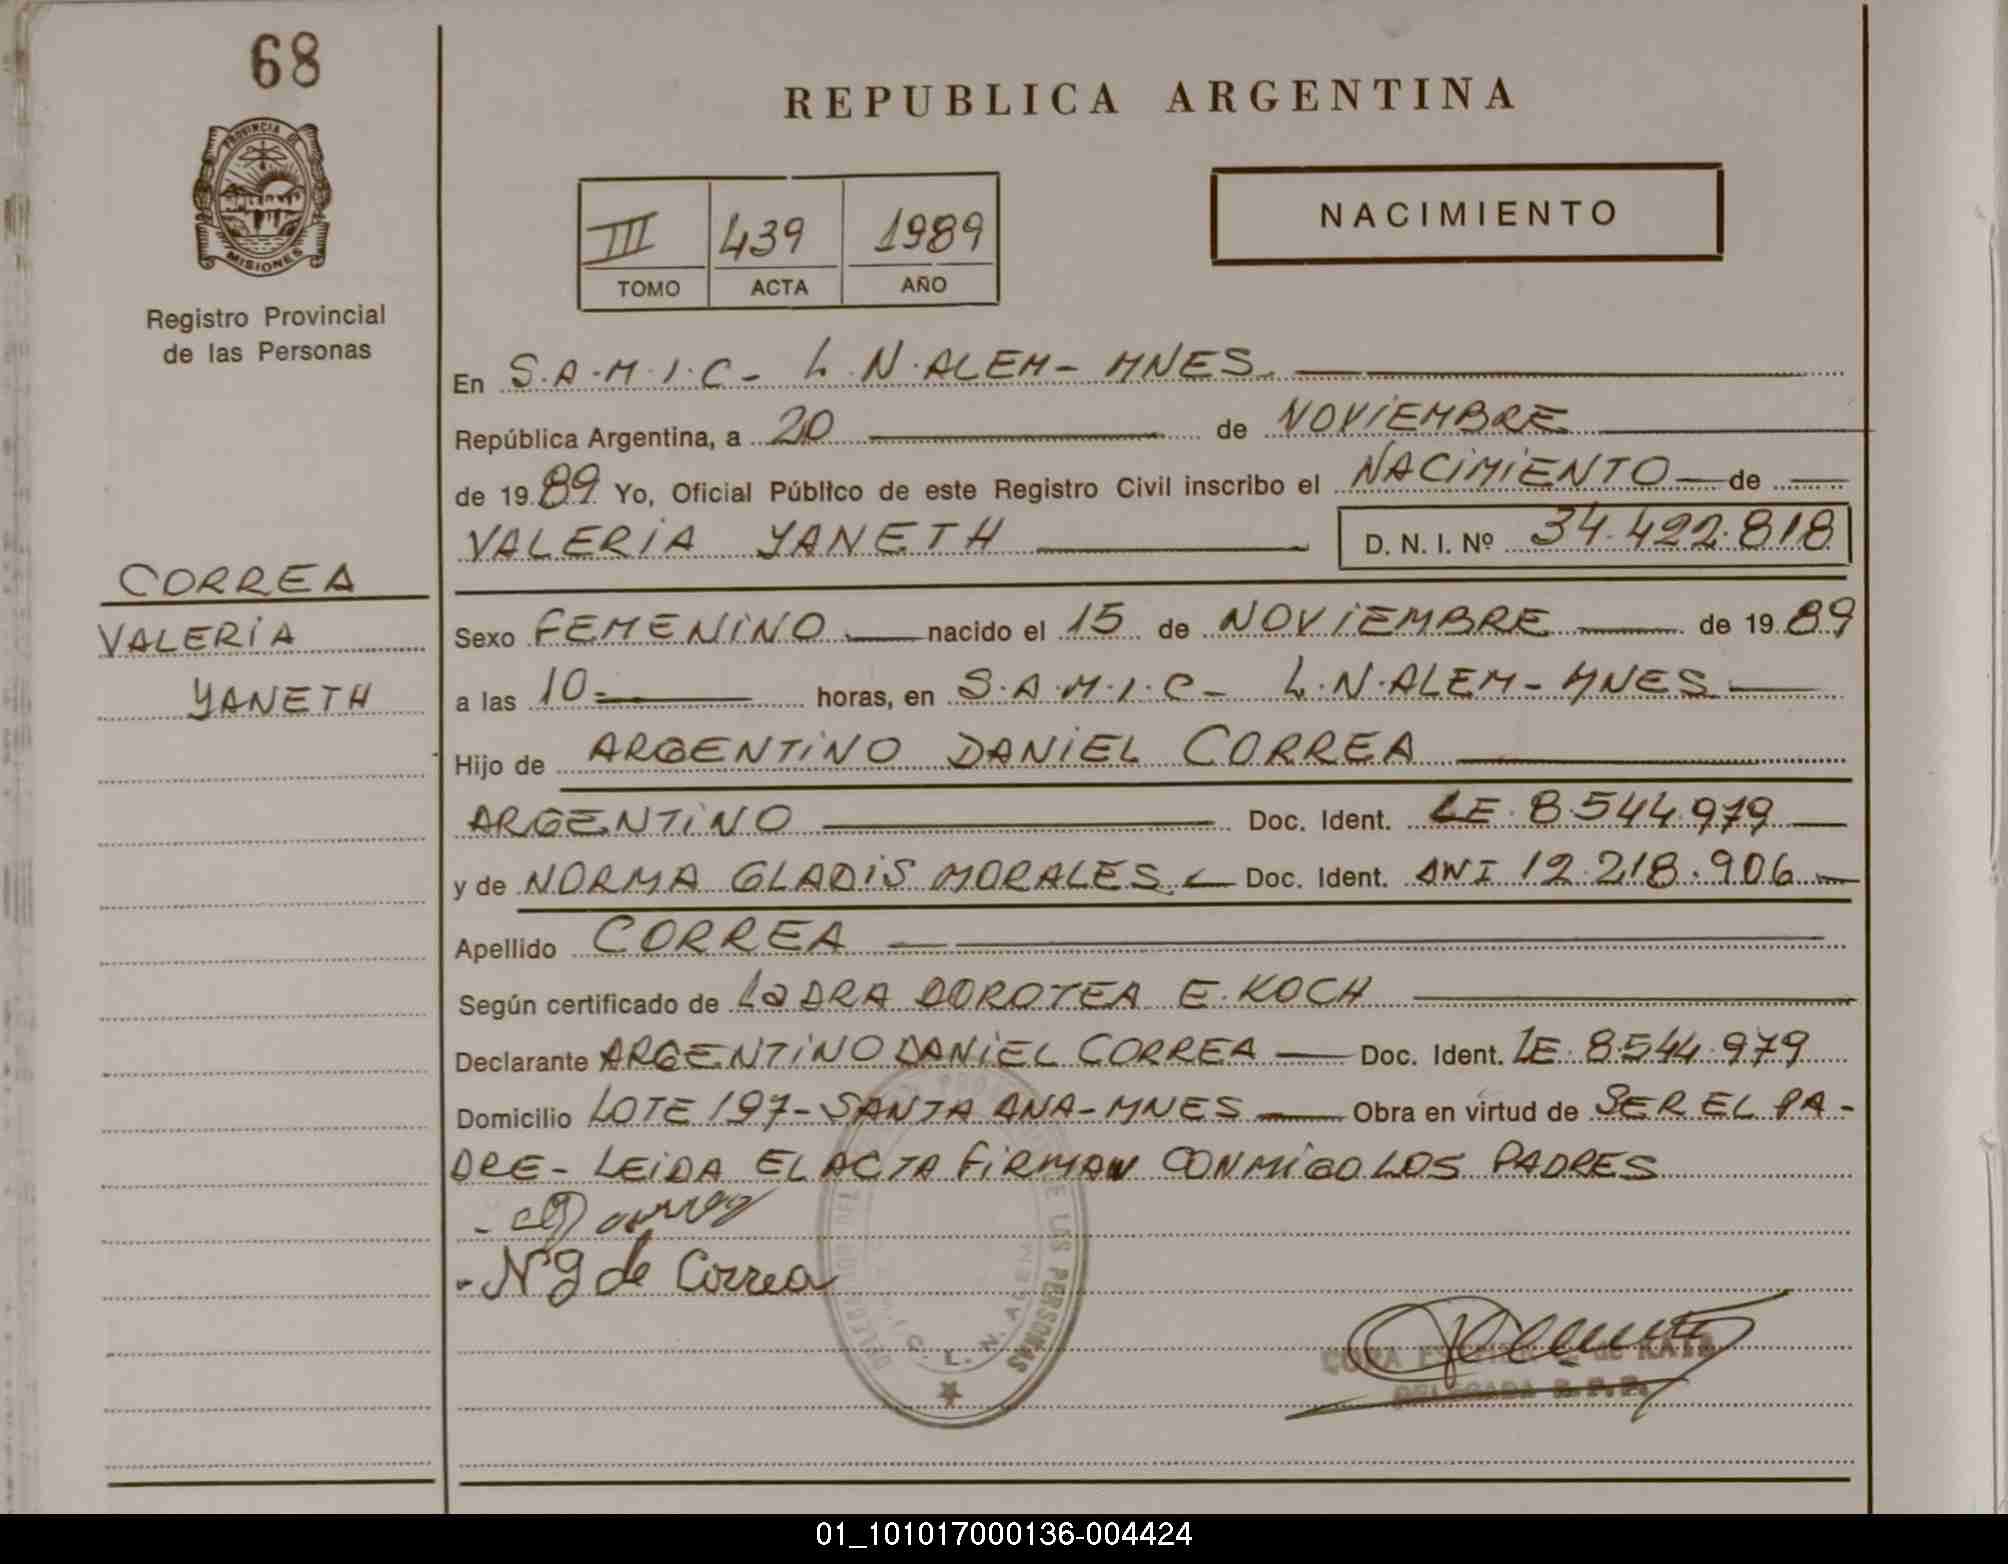 68
REPUBLICA ARGENTINA
PROVINCIA DE
MISIONES
NACIMIENTO
III 439 1989
TOMO ACTA AÑO
Registro Provincial
de las Personas
En S.A.M.I.C- L.N.ALEM- MNES.
República Argentina, a 20 de NOVIEMBRE
de 1989 Yo, Oficial Público de este Registro Civil inscribo el NACIMIENTO de
VALERIA YANETH D. N. I. Nº 34.422.818
CORREA
VALERIA
YANETH
Sexo FEMENINO nacido el 15 de NOVIEMBRE de 1989
a las 10= horas, en S.A.M.I.C- L.N.ALEM- MNES
Hijo de ARGENTINO DANIEL CORREA
ARGENTINO Doc. Ident. LE.8.544.979
y de NORMA GLADIS MORALES Doc. Ident. DNI 12.218.906
Apellido CORREA
Según certificado de La DRA DOROTEA E. KOCH
Declarante ARGENTINO DANIEL CORREA Doc. Ident. LE. 8.544.979
Domicilio LOTE 197- SANTA ANA- MNES Obra en virtud de SER EL PA-
DRE- LEIDA EL ACTA FIRMAN CONMIGO LOS PADRES
- N g de Correa
DE LAS PERSONAS
L. N. ALEM
de KATZ
DELEGADA R.P.P.
01_101017000136-004424